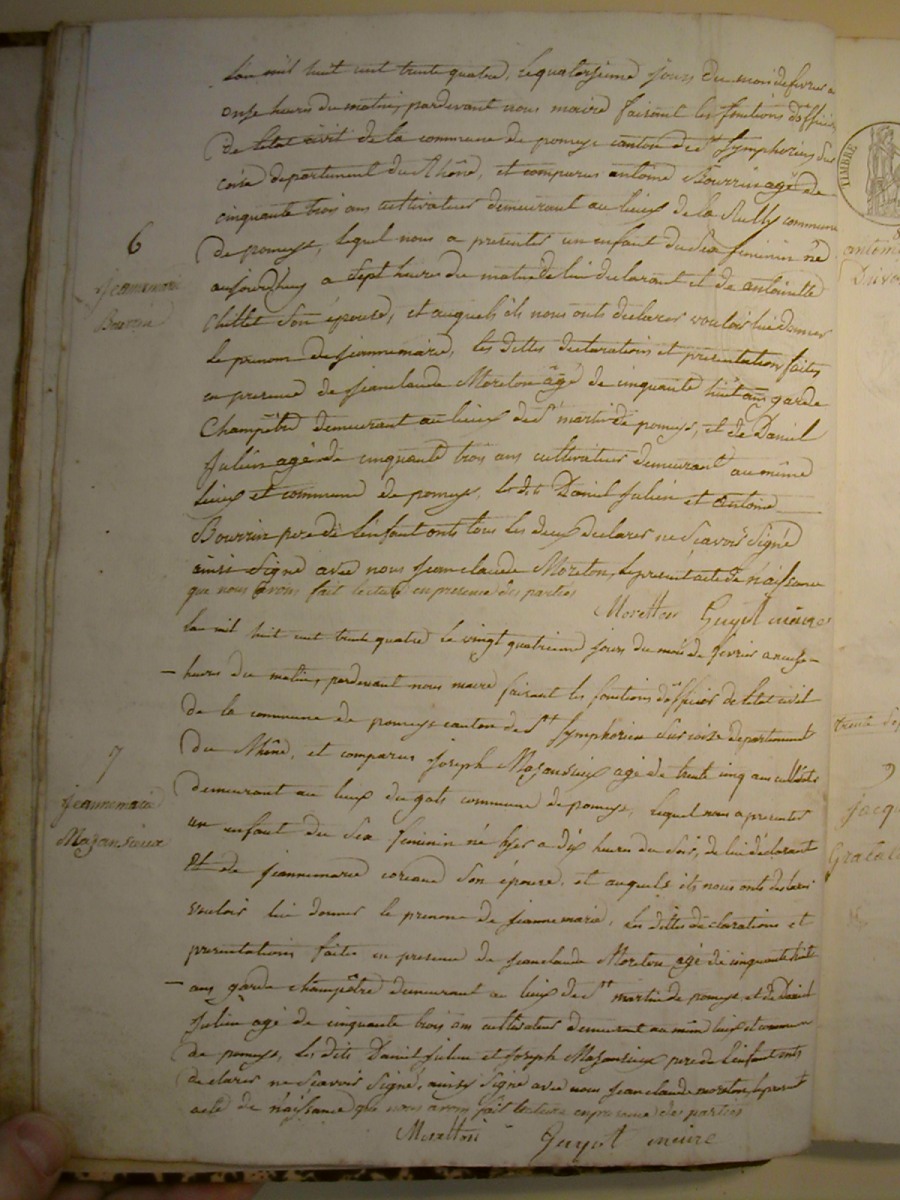 L'an mil huit cent trente quatre, le quatorzieme jour du mois de fevrier a
onse heures du matin, pardevant nous maire faisant les fonctions d'officier
de letat civil de la commune de pomeys canton de St Symphorien sur
coise departement du Rhône, et comparus antoine Bourrin agé de
cinquante trois ans cultivateur demeurant au lieux de la Rully commune
6
de pomeys, lequel nous a presenter un enfant du Sex feminin né
Jeannemarie
Bourrin
aujourdhuy a Sept heures du matin de lui declarant et de antoinette
Chillet Son épouse, et auquels ils nous onts declarer vouloir lui donner
le prenom de Jeannemarie, les dittes declarations et presentation faites
en presence de Jeanclaude Moreton âgé de cinquante huit ans garde
Champêtre demeurant au lieux de St martin de pomeys, et de Daniel
Julien agé de cinquante trois ans cultivateur demeurant au même
lieux et commune de pomeys, les dits Daniel Julien et antoine
Bourrin pere de l'enfant onts tous les deux declarer ne Scavoir Signé
ainsi Signé avec nous Jeanclaude Moreton, le present acte de naissance
que nous avons fait lecture en presence des parties
Moretton Guyot maire
Lan mil huit cent trente quatre le vingt quatrieme jour du mois de fevrier a onse
heures du matin, pardevant nous maire faisant les fonctions d'officier de letat civil
de la commune de pomeys canton de St Symphorien Sur coise departement
7
du Rhône, et comparus Joseph Majansieux agé de trente cinq ans
Jeannemarie
Majansieux
demeurant au lieux du gats commune de pomeys, lequel nous a presenter
un enfant du Sex feminin né hyer a dix heures du Soir, de lui declarant
et de Jeannemarie Son épouse, et auquels ils nous onts declarer
vouloir lui donner le prenom de Jeannemarie, les dittes declarations et
presentations faites en presence de Jeanclaude Moreton agé de cinquante huit
ans garde champêtre demeurant au lieux de St martin de pomeys et de Daniel
Julien agé de cinquante trois ans cultivateur demeurant au même lieux et commune
de pomeys, les dits Daniel Julien et Joseph Majansieux pere de l'enfant onts
declarer ne Scavoir Signé, ainsi Signé avec nous Jeanclaude moreton, le present
acte de naissance que nous avons fait lecture en presence des parties
Moretton Guyot maire
TIMBRE
trente
9